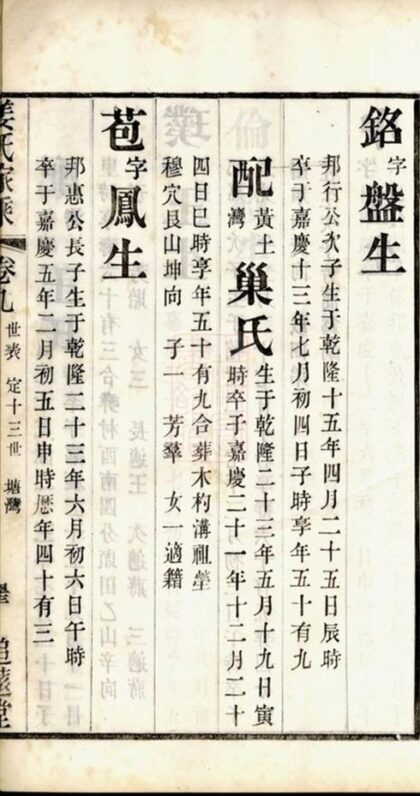 銘字盤生
邦行公次子生于乾隆十五年四月二十五日辰時
卒于嘉慶十三年七月初四日子時享年五十有九
配黃土灣巢氏生于乾隆二十三年五月十九日寅
時卒于嘉慶二十一年十二月二十
四日巳時享年五十有九合葬木杓溝祖塋
穆穴艮山坤向 子一 芳羣 女一適籍
苞字鳳生
邦惠公長子生于乾隆二十三年六月初六日午時
卒于嘉慶五年二月初五日申時歷年四十有三
姜氏家乘 卷九 世表 定十三世 塘灣 追遠堂